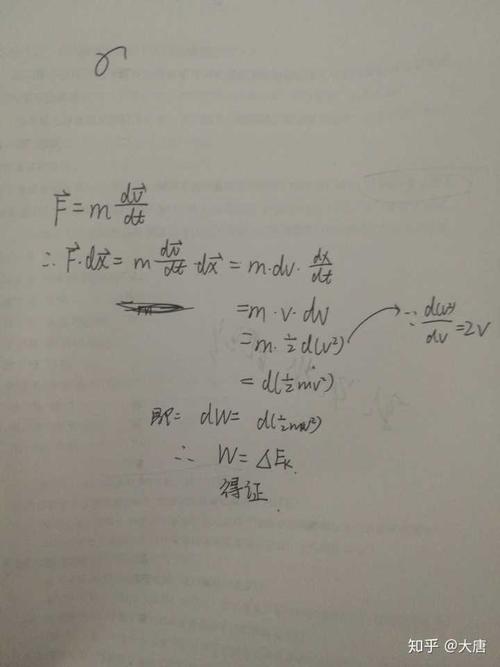 F⃗ = m dv⃗/dt
∴ F⃗·dx⃗ = m dv⃗/dt ·dx⃗ = m·dv· dx/dt
= m·v·dv
= m· ½ d(v²) ∵ d(v²)/dv = 2v
= d(½mv²)
即: dW = d(½mv²)
∴ W = △Eₖ.
得证
知乎 @大唐